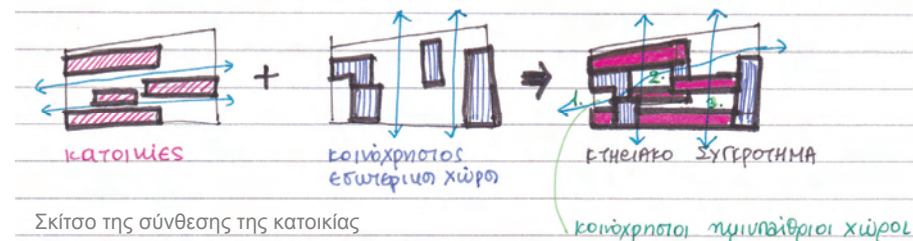 +
1.
2.
3.
κατοικίες
κοινόχρηστος
εσωτερικοι χώροι
ΚΤΗΡΙΑΚΟ ΣΥΓΚΡΟΤΗΜΑ
Σκίτσο της σύνθεσης της κατοικίας
κοινόχρηστοι ημιυπαίθριοι χώροι